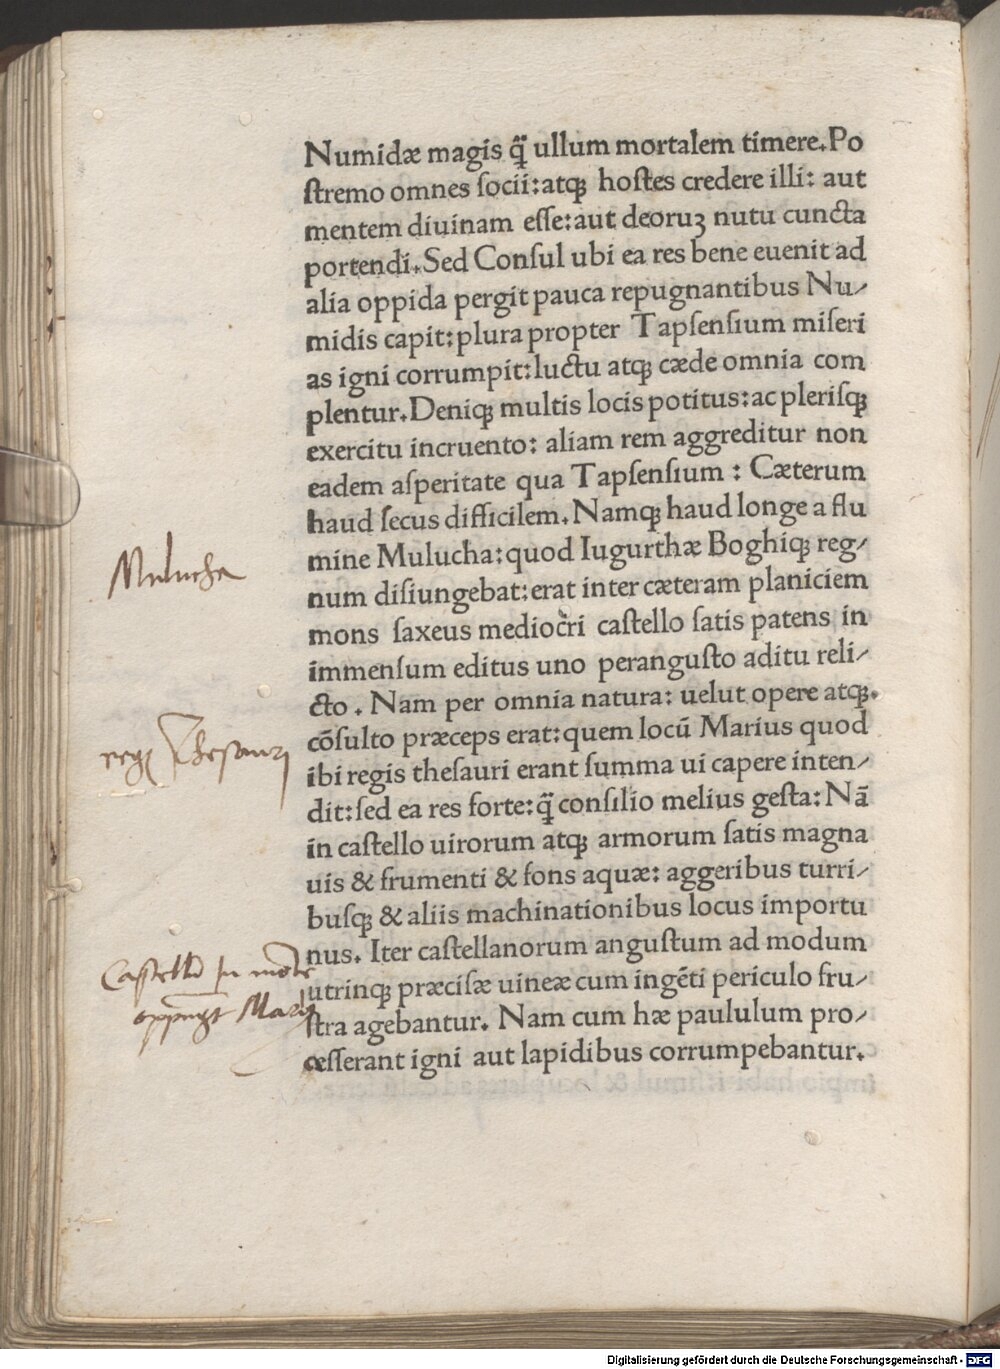 Numidæ magis q̃ ullum mortalem timere. Po
ſtremo omnes ſocii: atqꝫ hoſtes credere illi: aut
mentem diuinam eſſe: aut deoruꝫ nutu cuncta
portendi. Sed Conſul ubi ea res bene euenit ad
alia oppida pergit pauca repugnantibus Nu-
midis capit: plura propter Tapſenſium miſeri
as igni corrumpit: luctu atqꝫ cæde omnia com
plentur. Deniqꝫ multis locis potitus: ac pleriſqꝫ
exercitu incruento: aliam rem aggreditur non
eadem aſperitate qua Tapſenſium: Cæterum
haud ſecus difficilem. Namqꝫ haud longe a flu
mine Mulucha: quod Iugurthæ Boghiqꝫ reg-
num diſiungebat: erat inter cæteram planiciem
mons ſaxeus mediocri caſtello ſatis patens in
immenſum editus uno perangusto aditu reli-
cto. Nam per omnia natura: uelut opere atqꝫ.
cõſulto præceps erat: quem locũ Marius quod
ibi regis theſauri erant ſumma ui capere inten-
dit: ſed ea res forte: q̃ conſilio melius geſta: Nã
in caſtello uirorum atqꝫ armorum ſatis magna
uis & frumenti & fons aquæ: aggeribus turri-
buſqꝫ & aliis machinationibus locus importu
nus. Iter caſtellanorum anguſtum ad modum
utrinqꝫ præciſæ uineæ cum ingẽti periculo fru-
ſtra agebantur. Nam cum hæ paululum pro-
ceſſerant igni aut lapidibus corrumpebantur.
Mulucha
reg Theſauri
Caſtellũ in mõte
oppugt Mari
Digitalisierung gefördert durch die Deutsche Forschungsgemeinschaft - DFG